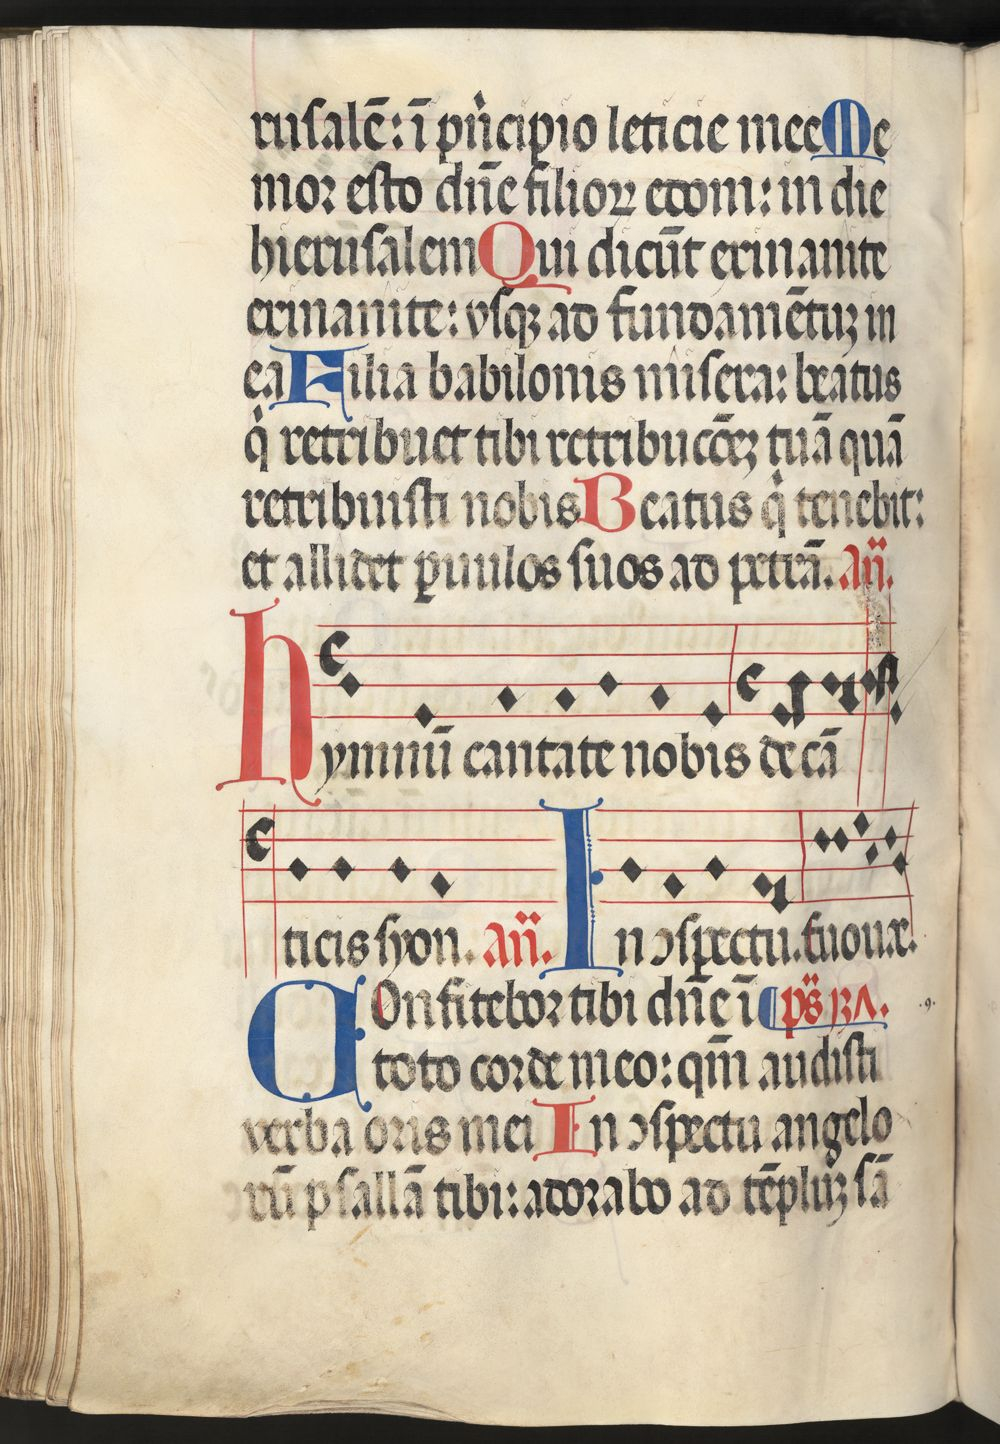 rusalē: ī pṅcipio leticie mee Me
mor esto dñe filioꝝ edom: in die
hierusalem Qui dicūt exinanite
exinanite: vsqꝫ ad fundamētuꝫ in
ea Filia babilonis misera: beatus
qⁱ retribuet tibi retribucōeꝫ tuā quā
retribuisti nobis Beatus qⁱ tenebit:
et allidet ꝑuulos suos ad petrā. añ.
hymnū cantate nobis de cā
ticis syon. añ. In ↄspectu. euouae.
COnfitebor tibi dñe ī ps̄
toto corde meo: qm̄ audisti
verba oris mei In ↄspectu angelo
rū psallā tibi: adorabo ad tēpluꝫ sā